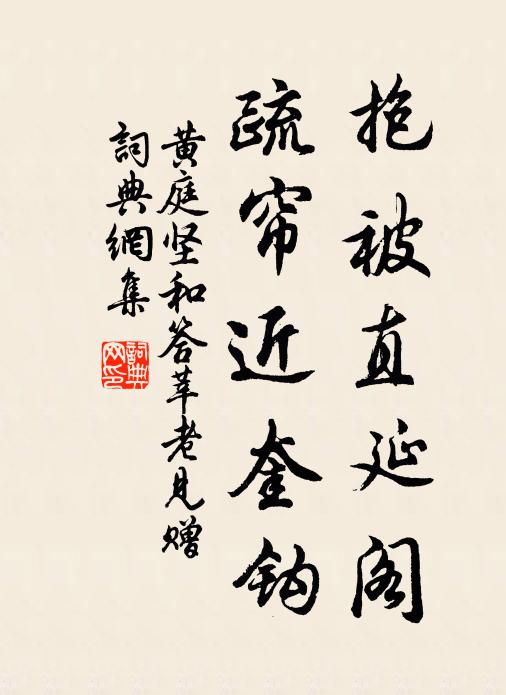 抱被直延阁
疏帘近奎钩
黄庭坚和答莘老见赠
詞典網集
詞典网印